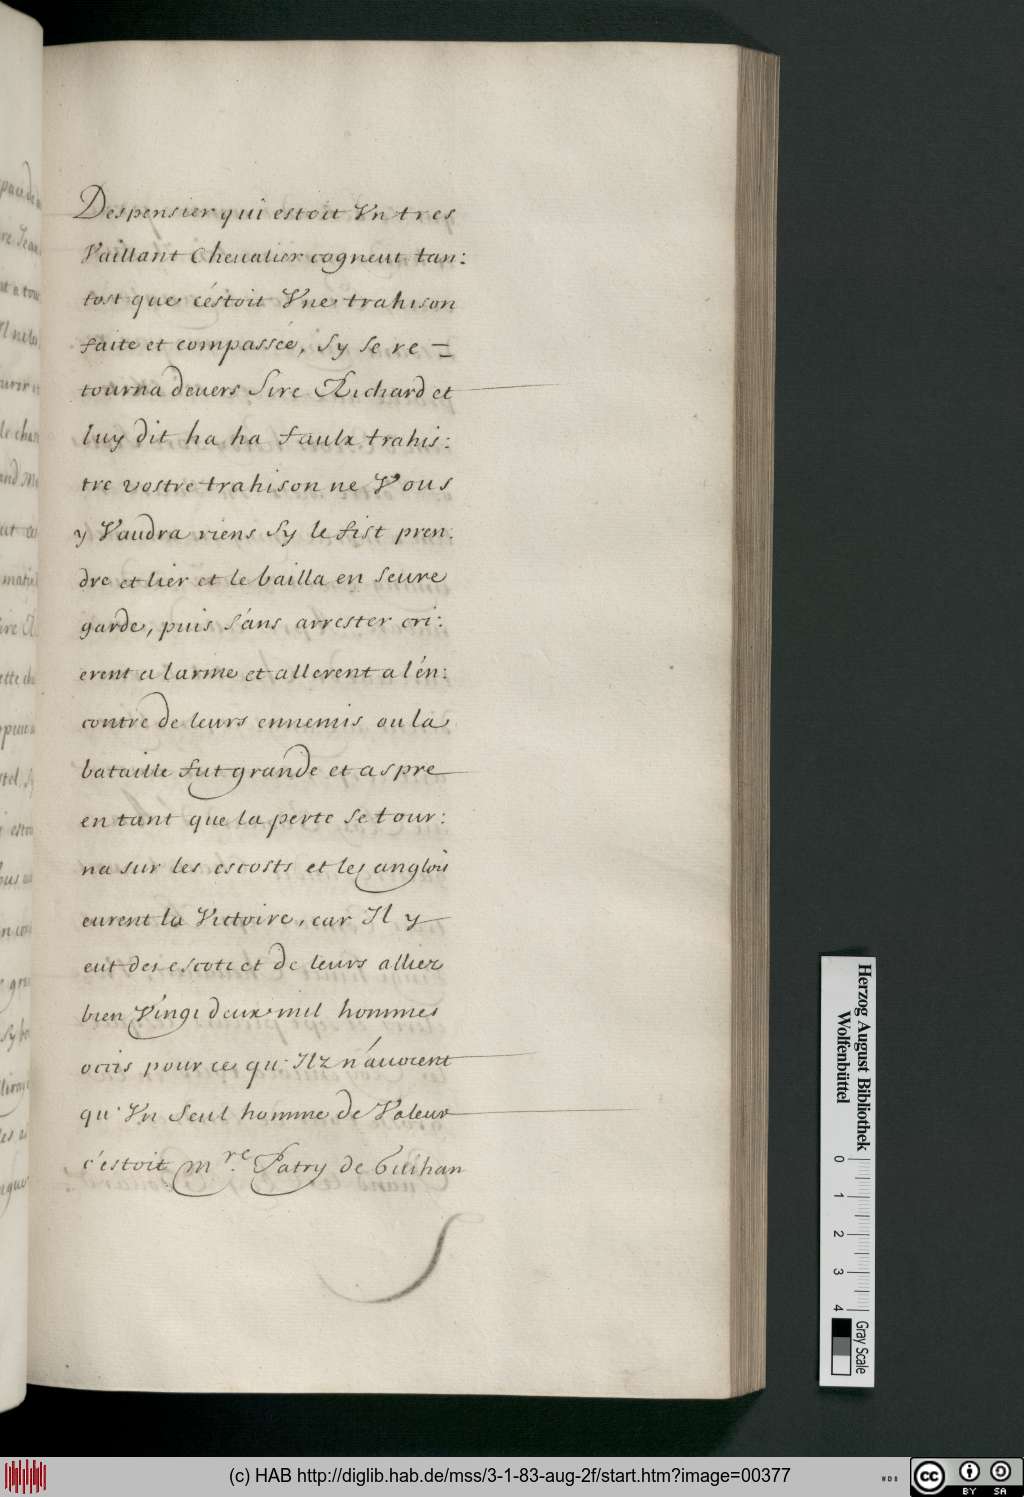 Despensier qui estoit Vn tres
Vaillant Cheualier cogneut tan:
tost que c'éstoit Vne trahison
faite et compassée, sy se re =
tourna deuers Sire Richard et
luy dit ha ha faulx trahis:
tre vostre trahison ne Vous
y Vaudra riens Sy le fist pren:
dre et lier et le bailla en seure
garde, puis s'ans arrester cri:
erent a larme et allerent a l'én:
contre de leurs ennemis ou la
bataille fut grande et aspre
en tant que la perte se tour:
na sur les escosts et les anglois
eurent la Victoire, car Il y
eut des escots et de leurs alliez
bien Vingt deux mil hommes
ociis pour ce qu' Ilz n'auoient
qu' Vn seul homme de Valeur
c'estoit m.re Patry de
Herzog August Bibliothek
Wolfenbüttel
0 1 2 3 4
Gray Scale
(c) HAB http://diglib.hab.de/mss/3-1-83-aug-2f/start.htm?image=00377
WDB
cc BY SA